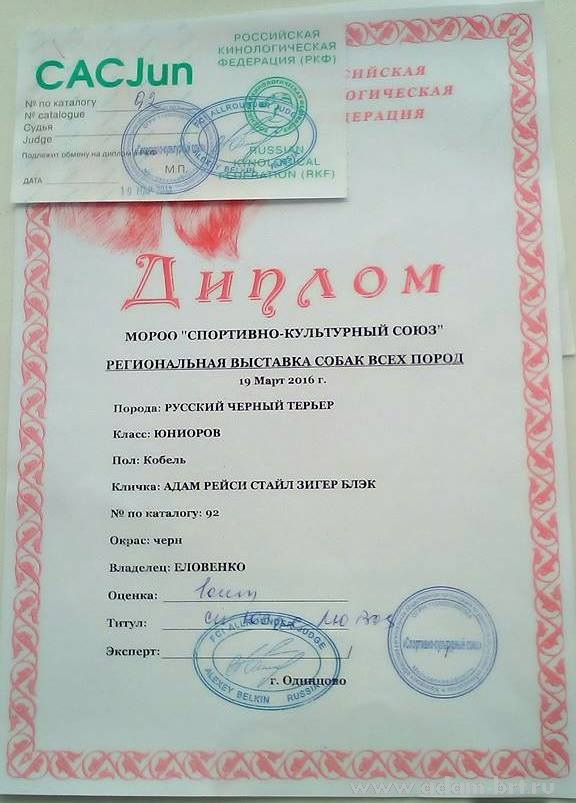 РОССИЙСКАЯ
КИНОЛОГИЧЕСКАЯ
ФЕДЕРАЦИЯ (РКФ)
CACJun
№ по каталогу 92
№ catalogue
Судья
Judge
Подлежит обмену на диплом в РКФ
М.П.
ДАТА
FCI ALLROUNDER JUDGE
ALEXEY BELKIN
RUSSIAN
KYNOLOGICAL
FEDERATION (RKF)
Диплом
МОРОО "СПОРТИВНО-КУЛЬТУРНЫЙ СОЮЗ"
РЕГИОНАЛЬНАЯ ВЫСТАВКА СОБАК ВСЕХ ПОРОД
19 Март 2016 г.
Порода: РУССКИЙ ЧЕРНЫЙ ТЕРЬЕР
Класс: ЮНИОРОВ
Пол: Кобель
Кличка: АДАМ РЕЙСИ СТАЙЛ ЗИГЕР БЛЭК
№ по каталогу: 92
Окрас: черн
Владелец: ЕЛОВЕНКО
Оценка:
Титул:
Эксперт:
FCI ALLROUNDER JUDGE
ALEXEY BELKIN RUSSIA
"Спортивно-культурный союз"
г. Одинцово
www.adam-brt.ru